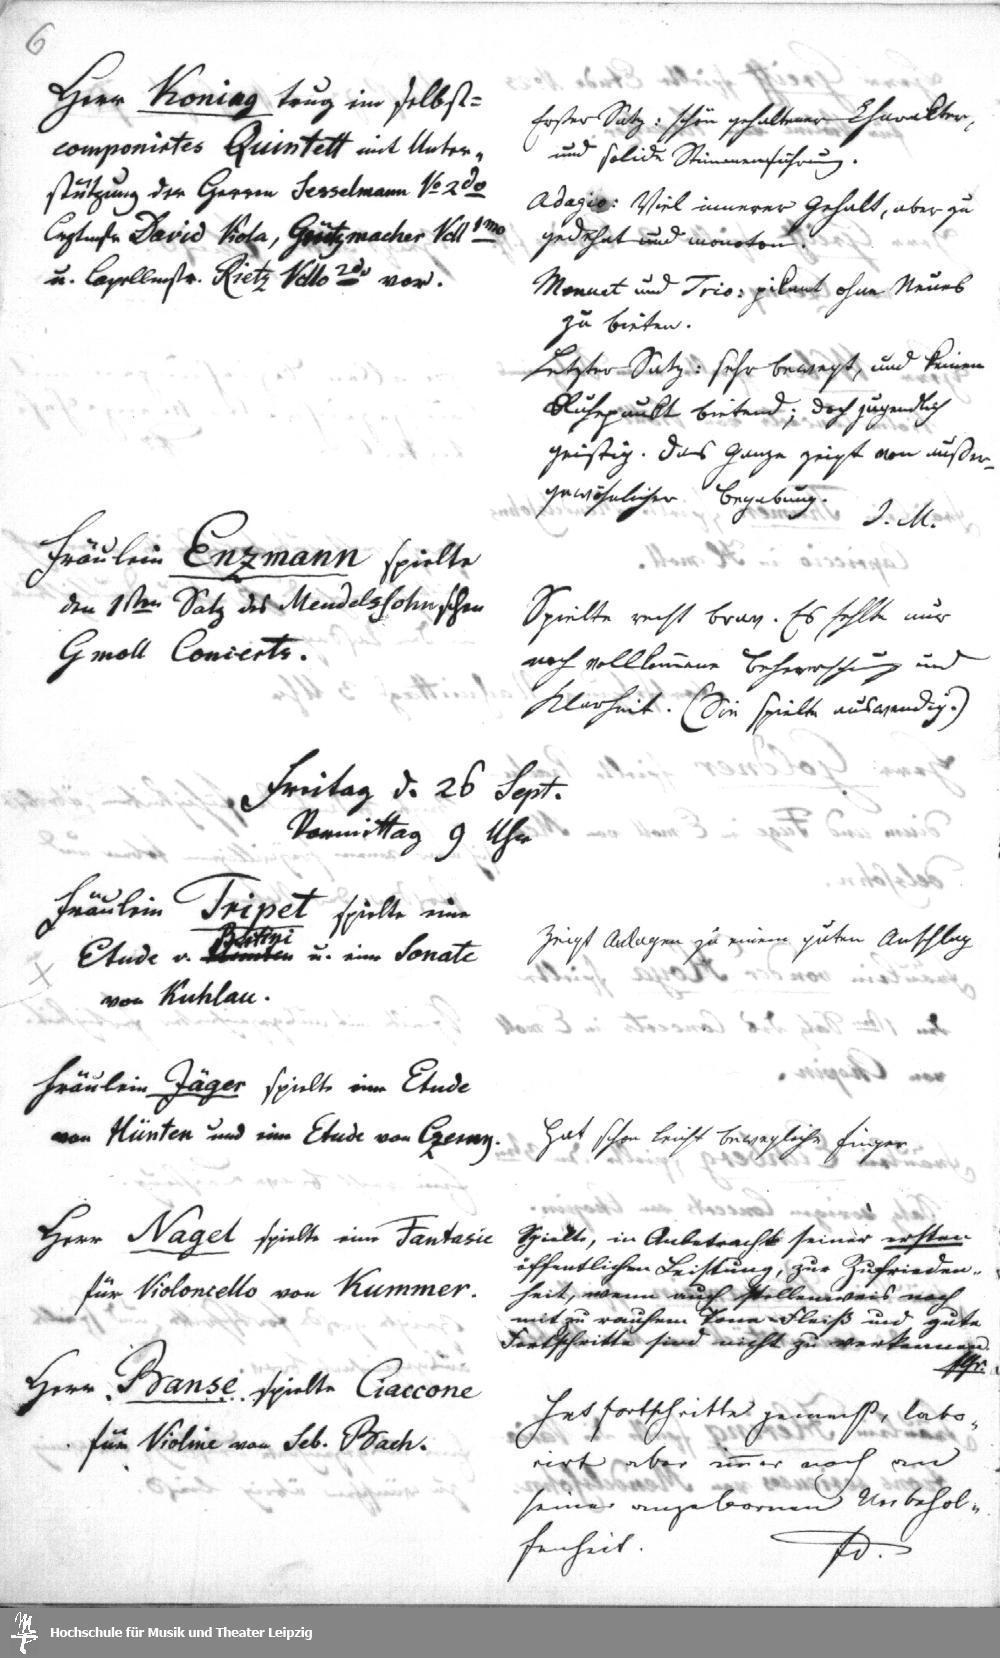 6
Herr Koning trug im selbst=
componirtes Quintett mit Unter-
stützung der Herren Sesselmann Vo 2do
Conztmstr David Viola, Grützmacher Vcll 1mo
u. Capellmstr. Rietz Vcllo 2do vor.
Erster Satz: schön gehaltener Charakter,
und solide Stimmenführung.
Adagio: Viel innerer Gehalt, aber zu
gedehnt und monoton.
Menuet und Trio: pikant ohne Neues
zu bieten.
Letzter Satz: sehr bewegt, und keinen
Ruhepunkt bietend; doch jugendlich
geistig. Das Ganze zeigt von außer-
gewöhnlicher Begabung.
I. M.
Fräulein Enzmann spielte
den 1sten Satz des Mendelssohnschen
Gmoll Concerts.
Spielte recht brav. Es fehlte nur
noch vollkommene Beherrschung und
Klarheit. (Sie spielte auswendig.)
Freitag d. 26 Sept.
Vormittag 9 Uhr
Fräulein Tripet spielte eine
Bertini
Etude v. Hünten u. eine Sonate
von Kuhlau.
Zeigt Anlagen zu einem guten Anschlag
Fräulein Jäger spielte eine Etude
von Hünten und eine Etude von Czerny.
Hat schon leicht bewegliche Finger
Herr Nagel spielte eine Fantasie
für Violoncello von Kummer.
Spielte, in Anbetracht seiner ersten
öffentlichen Leistung, zur Zufrieden-
heit, wenn auch stellenweis noch
mit zu rauhem Tone. Fleiß und gute
Fortschritte sind nicht zu verkennen.
Gr.
Herr Banse spielte Ciaccone
für Violine von Seb. Bach.
Hat Fortschritte gemacht, labo-
rirt aber immer noch an
seiner angebornen Unbehol-
fenheit.
FD.
Hochschule für Musik und Theater Leipzig